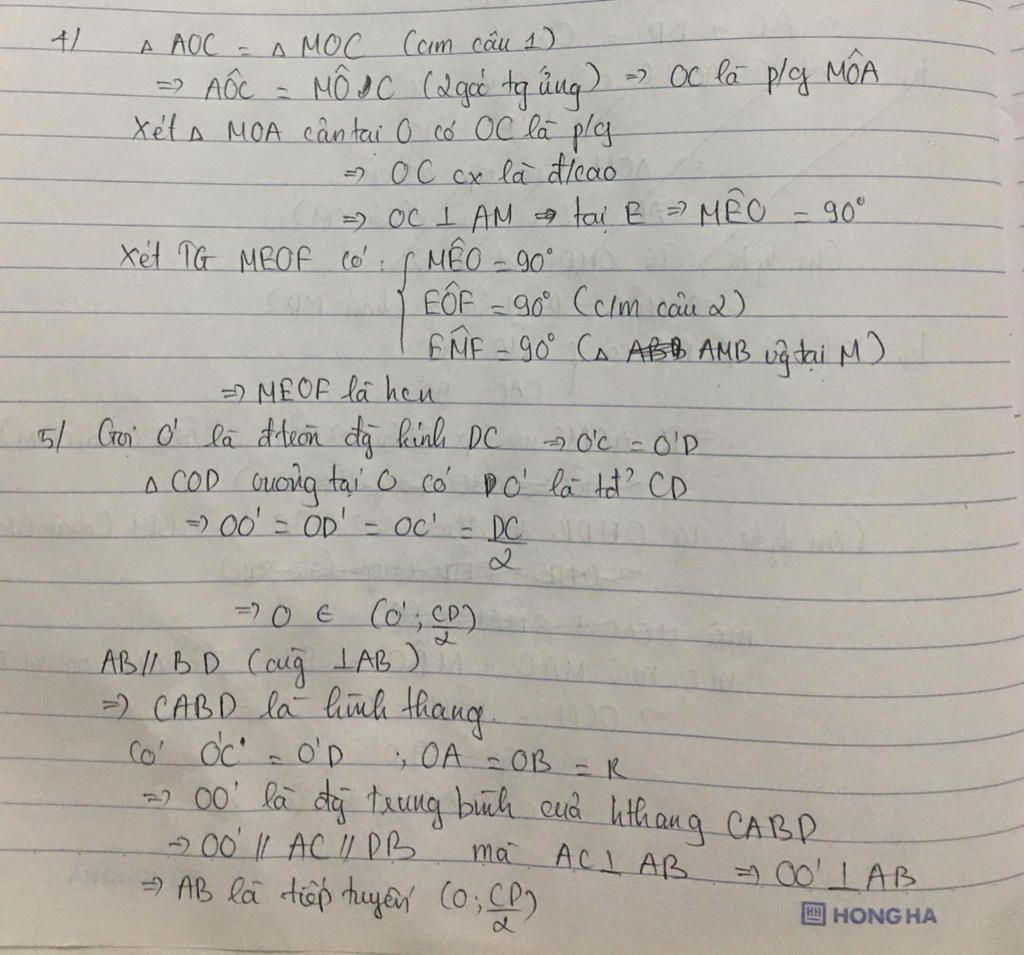 4/ Δ AOC = Δ MOC (cm câu 1)
=> AÔC = MÔC (2 góc tg ứng) => OC là p/g MÔA
Xét Δ MOA cân tại O có OC là p/g
=> OC cx là đ/cao
=> OC ⊥ AM => tại E => MÊO = 90°
Xét TG MEOF có: { MÊO = 90°
EÔF = 90° (c/m câu 2)
EM̂F = 90° (Δ AMB vg tại M)
=> MEOF là hcn
5/ Gọi O' là đtròn đg kính DC => O'C = O'D
Δ COD vuông tại O có O' là tđ² CD
=> OO' = OD' = OC' = DC/2
=> O ∈ (O'; CD/2)
AB // BD (cùg ⊥ AB)
=> CABD là hình thang.
Có O'C = O'D ; OA = OB = R
=> OO' là đg trung bình của hthang CABD
=> OO' // AC // DB mà AC ⊥ AB => OO' ⊥ AB
=> AB là tiếp tuyến (O; CD/2)
HH HONG HA